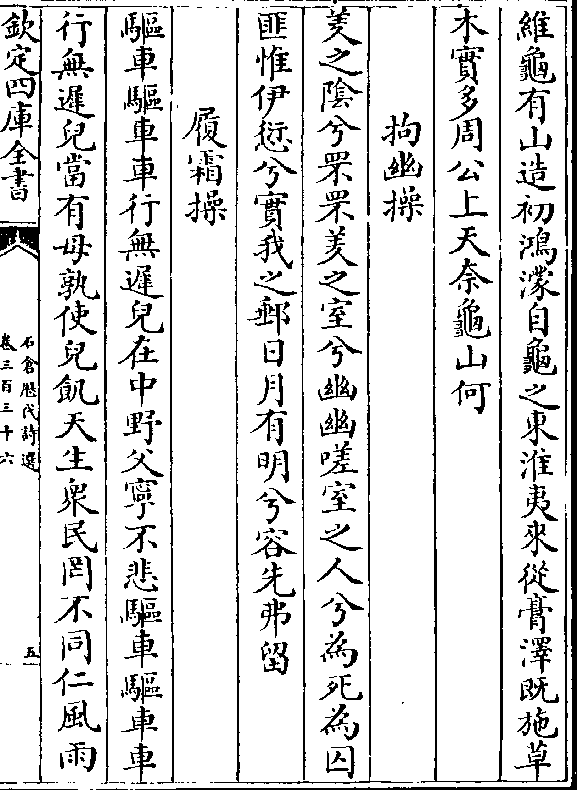 維龜有山造初鴻濛自龜之東淮夷來從膏澤既施草
木實多周公上天奈龜山何
拘幽操
羑之陰兮罘罘羑之室兮幽幽嗟室之人兮為死為囚
匪惟伊愆兮實我之郵日月有明兮容先弗留
履霜操
驅車驅車車行無遲兒在中野父寧不悲驅車驅車車
行無遲兒當有母孰使兒飢天生衆民罔不同仁風雨
欽定四庫全書
石倉歷代詩選
卷三百三十六
五